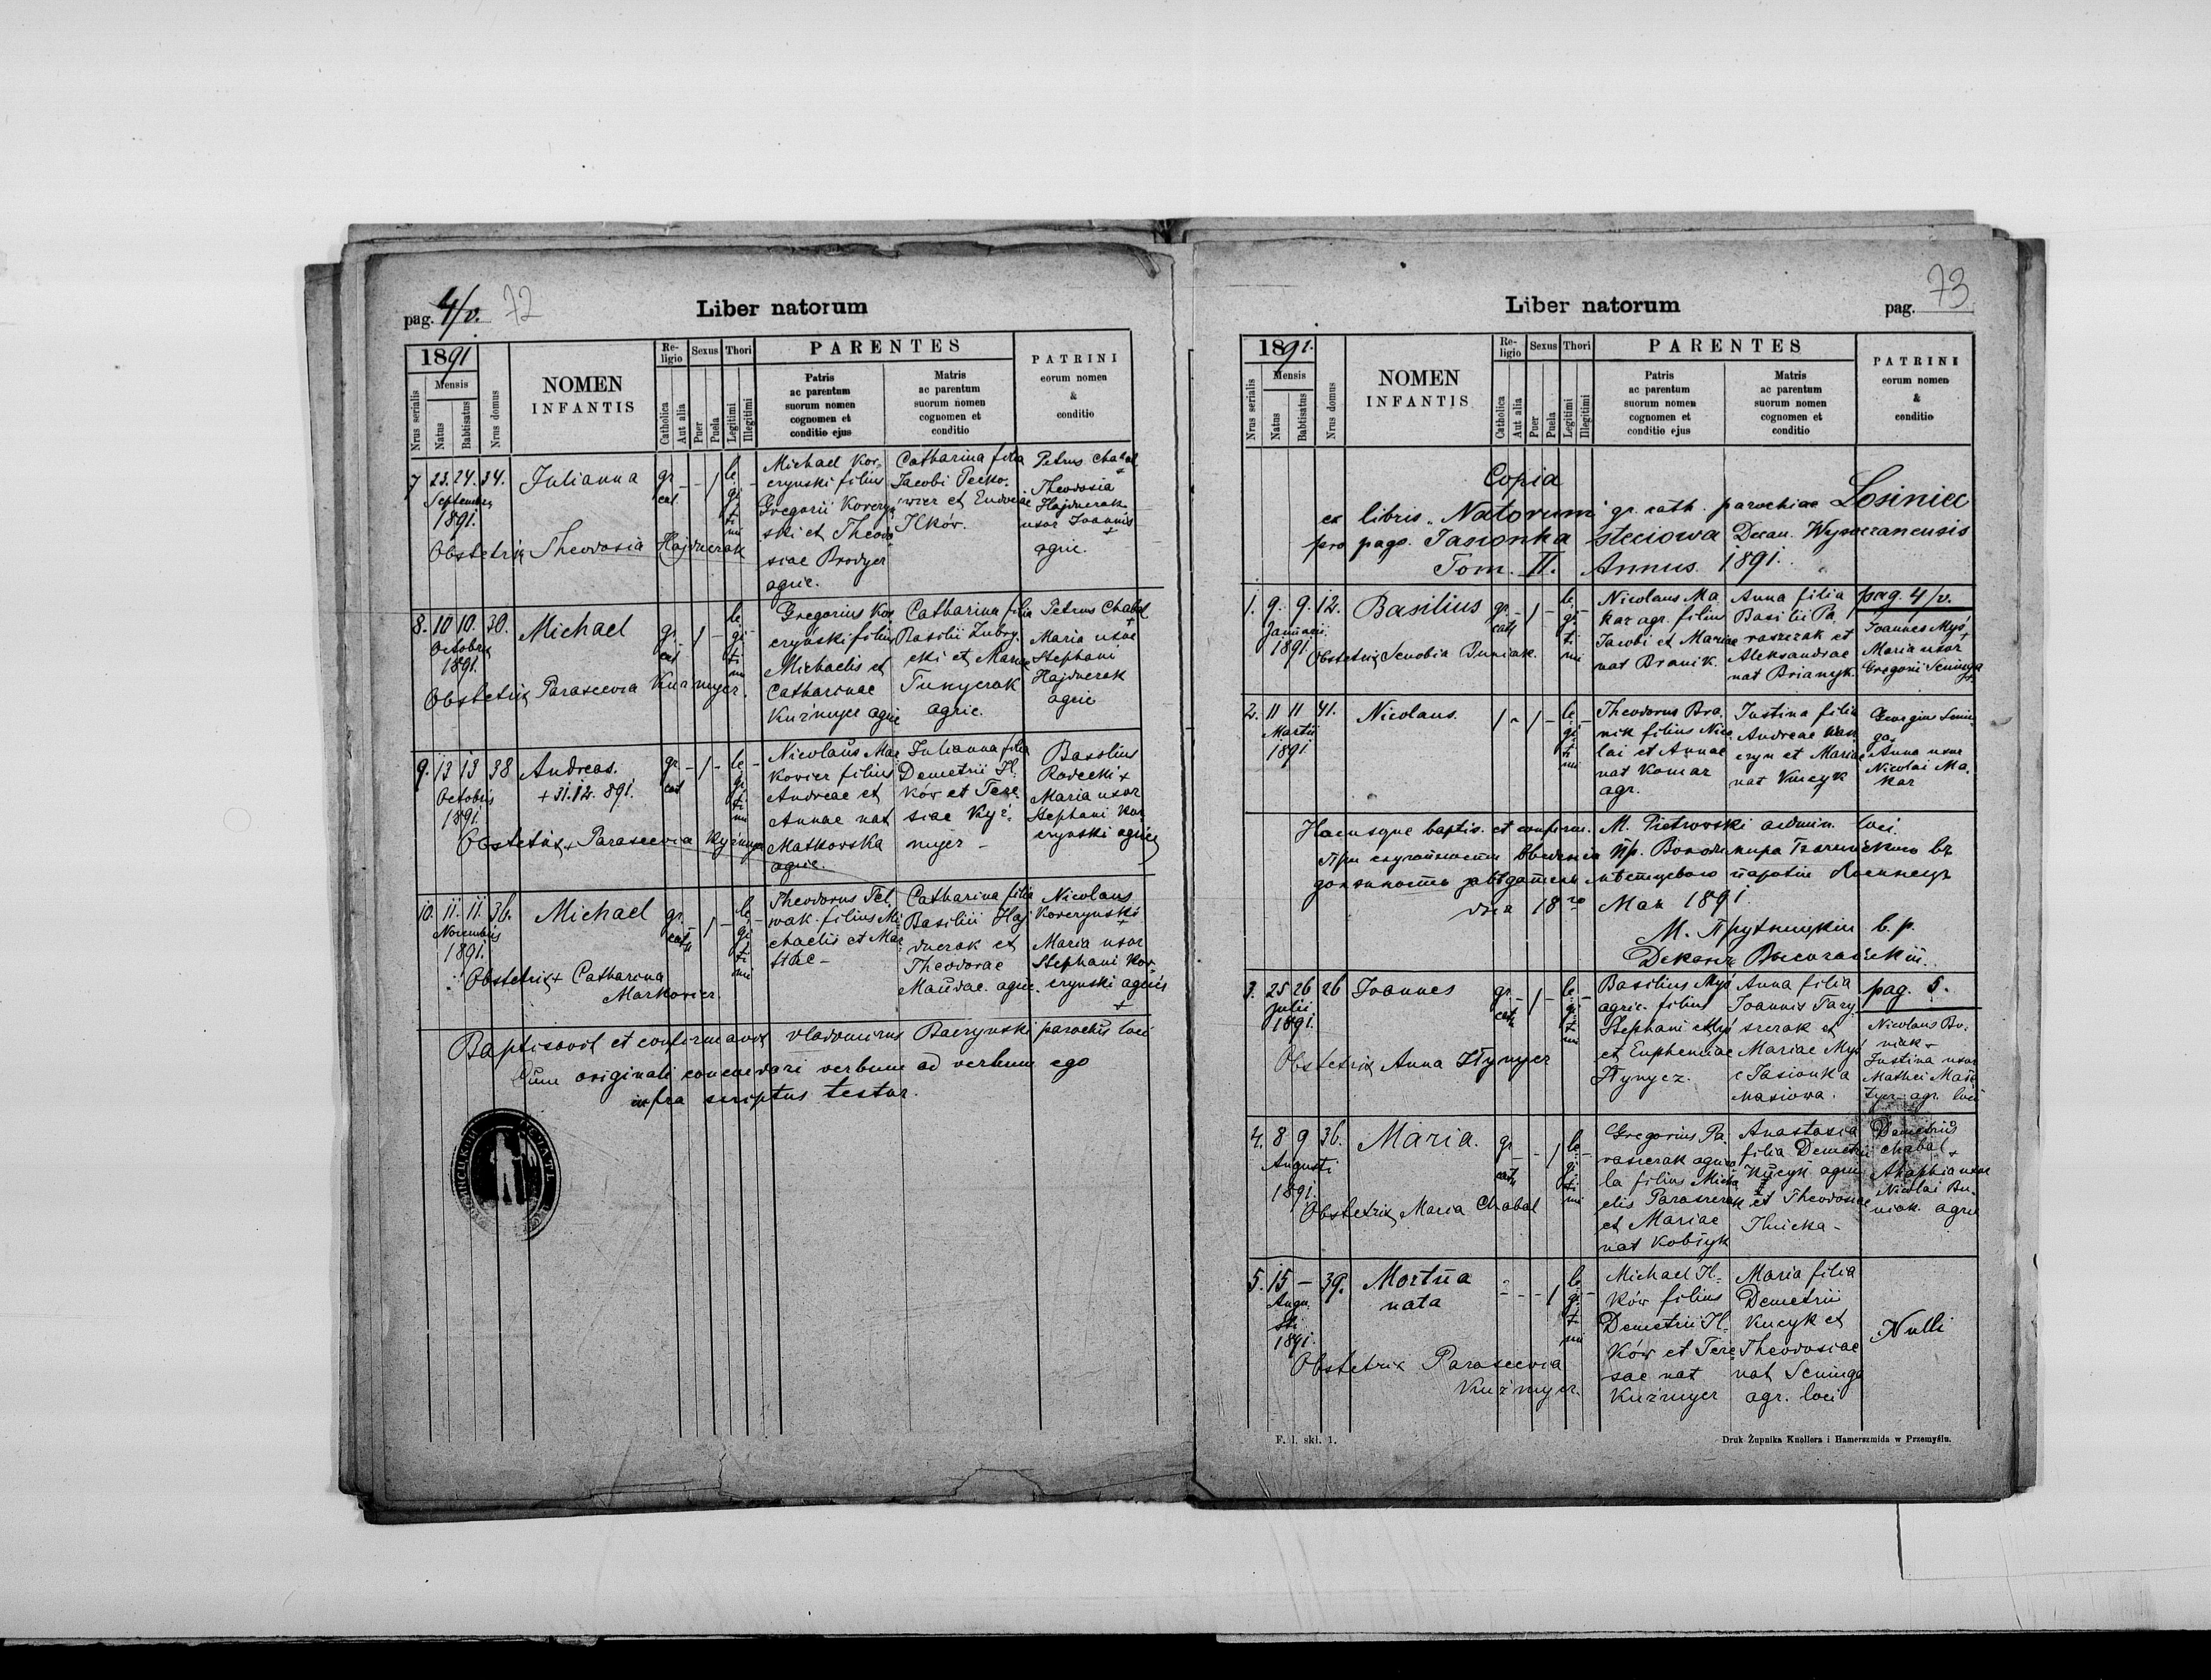 pag. 4/v. 72
Liber natorum
1891
Mensis
Nrus serialis
Natus
Babtisatus
Nrus domus
NOMEN
INFANTIS
Religio
Catholica
Aut alia
Sexus
Puer
Puela
Thori
Legitimi
Illegitimi
PARENTES
Patris
ac parentum
suorum nomen
cognomen et
conditio ejus
Matris
ac parentum
suorum nomen
cognomen et
conditio
PATRINI
eorum nomen
&
conditio
7 23. 24. 34.
September
1891.
Julianna
gr. cat. - - 1 legitimi
Michael Kor-
erynski filius
Gregorii Koreryn
ski et Theodo
siae Brodyer
agric.
Catharina filia
Jacobi Pecko-
wier et Eudociae
Ilków.
Petrus Chabal
+
Theodosia
Hajduerak
uxor Joannis
+
agric.
Obstetrix Theodosia Hajduerak
8. 10 10. 30.
Octobris
1891.
Michael
gr. cat - 1 - legitimi
Gregorius Kor
erynski filius
Michaelis et
Catharinae
Kuźmyer agric
Catharina filia
Basilii Zubry.
cki et Mariae
Tukyerak
agric.
Petrus Chabal
+
Maria uxor
Stephani
Hajduerak
agric
Obstetrix Parascevia Kuźmyer.
9. 13 13 38
Octobris
1891.
Andreas.
+ 31.12. 891.
gr. cat - 1 - legitimi -
Nicolaus Mar
kovier filius
Andreae et
Annae nat
Matkovska
agric.
Julianna filia
Demetrii Il-
ków et Tere
siae Kyź-
myer -
Basilius
Radecki +
Maria uxor
Stephani Kor
erynski agric
Obstetrix + Parascevia Kyźmyer
10. 11. 11. 36.
Novembris
1891.
Michael
gr. cath - 1 - legitimi -
Theodorus Tel.
wak. filius Mi
chaelis et Mar
thae -
Catharina filia
Basilii Haj
duerak et
Theodorae
Maudae. agric.
Nicolaus
Korerynski
+
Maria uxor
Stephani Kor-
erynski agric
+
Obstetrix + Catharina
Markovier.
Baptisavit et confirmavit Vladomirus Baerynski parochus loci
Cum originali concordari verbum ad verbum ego
infra scriptus testor.
Liber natorum
pag. 73
1891.
Mensis
Nrus serialis
Natus
Babtisatus
Nrus domus
NOMEN
INFANTIS
Religio
Catholica
Aut alia
Sexus
Puer
Puela
Thori
Legitimi
Illegitimi
PARENTES
Patris
ac parentum
suorum nomen
cognomen et
conditio ejus
Matris
ac parentum
suorum nomen
cognomen et
conditio
PATRINI
eorum nomen
&
conditio
Copia
ex libris "Natorum" gr. cath. parochiae Losiniec
pro pago. Jasionka steciowa Decan. Wysoczanensis
Tom. II. Annus. 1891.
1. 9. 9. 12.
Januarii.
1891.
Basilius
gr. cath - 1 - legitimi
Nicolaus Ma
kar agr. filius
Jacobi et Mariae
nat Branik.
Anna filia
Basilii Pa.
raszerak et
Aleksandrae
nat Brianyk.
pag. 4/v.
Joannes Myś
+
Maria uxor
Gregorii Seninga
+
Obstetrix Senobia Buniak.
2. 11 11 41.
Martii
1891
Nicolaus.
1 - 1 - legitimi -
Theodorus Bra.
nik filius Nico
lai et Annae
nat Komar
agr.
Justina filia
Andreae Was
eryn et Mariae
nat Kucyk
Georgius Senin
ga.
Anna uxor
Nicolai Ma.
kar
Hacusque baptis. et confirm. M. Pietrovski admin. loci.
дня 18го Мая 1891
М. Прутницкій в. р.
Деканъ Височанскій.
3. 25 26 26
Julii
1891.
Joannes
gr. cath - 1 - legitimi -
Basilius Myś
agric. filius
Stephani Myś
et Euphemiae
Hynyez.
Anna filia
Joannis Tary.
szerak et
Mariae Myś
e Jasionka
masiowa.
pag. 5.
Nicolaus Bu.
niak +
Justina uxor
Mathei Mate
tyer agr. loci
Obstetrix Anna Hynyer
4. 8 9 36.
Augusti
1891.
Maria.
gr. cath - - 1 legitimi -
Gregorius Pa.
raszerak agrico
la filius Micha
elis Paraszerak
et Mariae
nat Kobiyk
Anastasia
filia Demetrii
Kucyk agric
et Theodosiae
Ilnicka -
Demetrius
Chabal
+
Ahaphia uxor
Nicolai Bu-
niak. agric
Obstetrix Maria Chabal
5. 15 - 39.
Augu.
sti
1891.
Mortua
nata
- - - 1 legitimi -
Michael Il-
ków filius
Demetrii Il-
ków et Tere
sae nat
Kuźmyer
Maria filia
Demetrii
Kucyk et
Theodosiae
nat Seninga
agr. loci
Nulli
Obstetrix Parascevia
Kuźmyer.
F. l. ski. 1.
Druk Żupnika Knollera i Hamerszmida w Przemyślu.